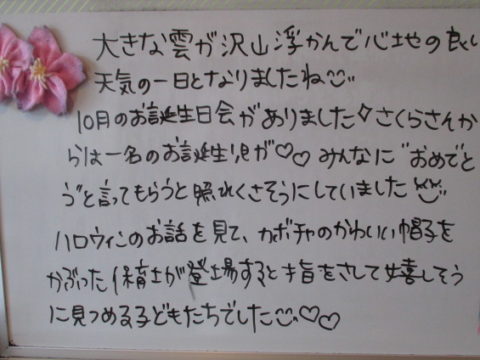 大きな雲が沢山浮かんで心地の良い
天気の一日となりましたね
10月のお誕生日会がありました◇さくらさんか
らは一名のお誕生児が♡♡みんなに"おめでと
う"と言ってもらうと照れくさそうにしていました
ハロウィンのお話を見て、カボチャのかわいい帽子を
かぶった保育士が登場すると指をさして嬉しそう
に見つめる子どもたちでした♡♡